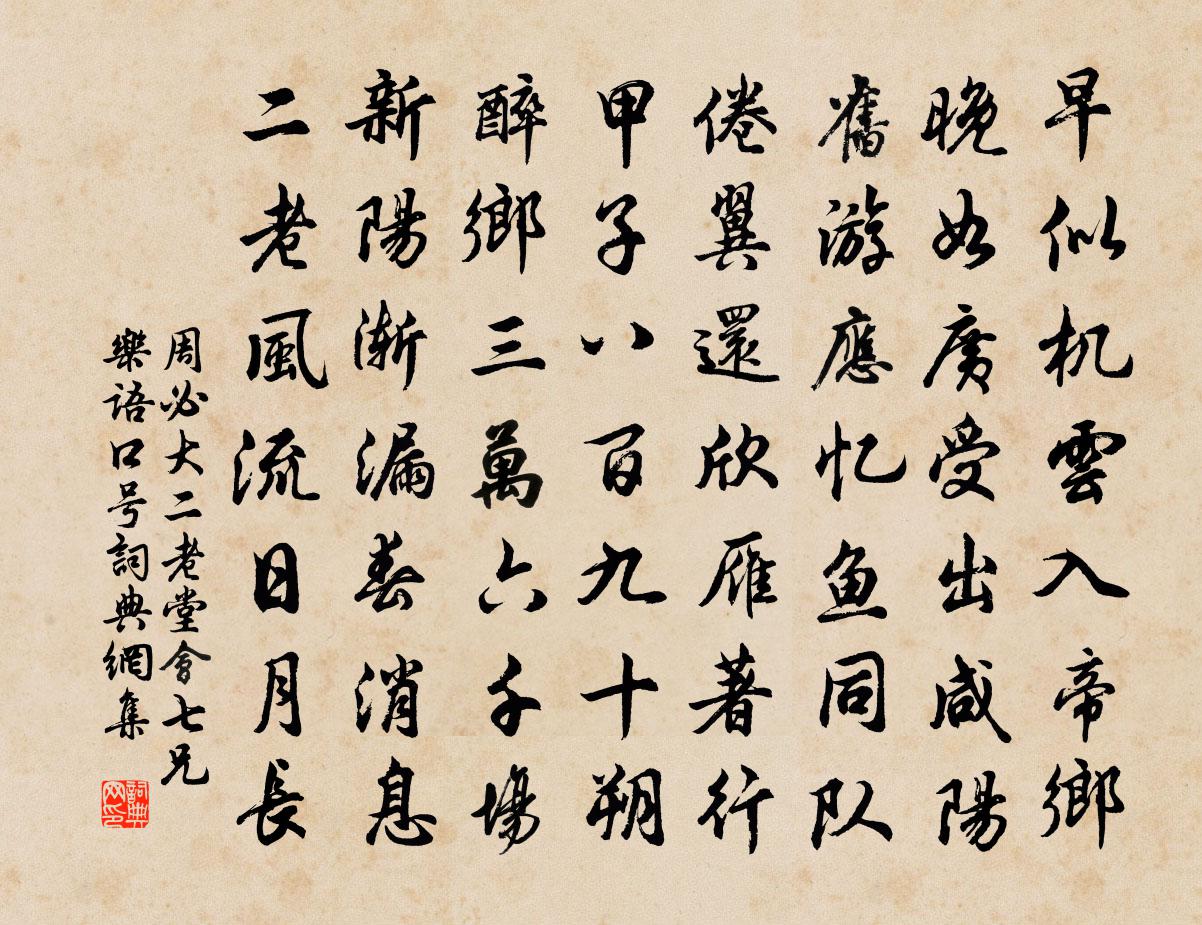 早似机雲入帝鄉
晚如廣受出咸陽
舊游應忆鱼同队
倦翼還欣雁著行
甲子八百九十朔
醉鄉三萬六千場
新陽漸漏春消息
二老風流日月長
周必大二老堂會七兄
樂語口号詞典網集
詞典网印